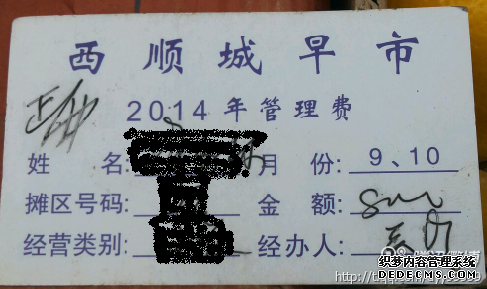 西顺城早市
2014年管理费
姓 名: 月 份: 9、10
摊区号码: 金 额:
经营类别: 经办人:
织梦内容管理系统
DEDECMS.COM